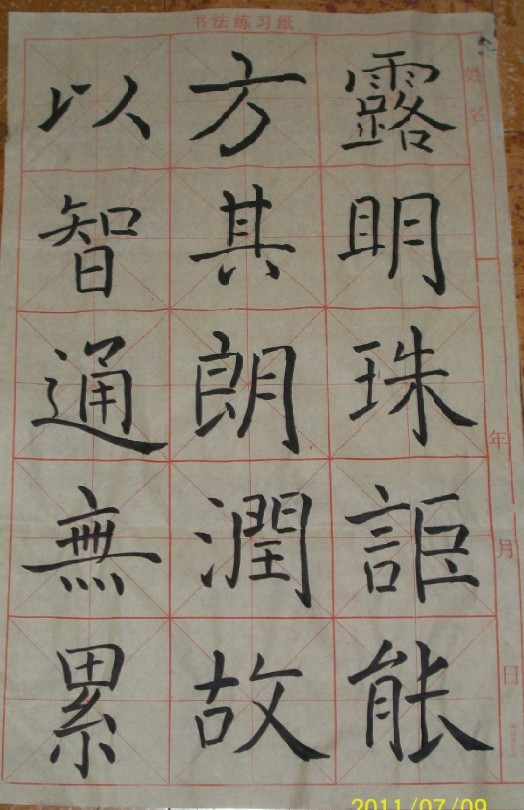 书法练习纸
姓名
年
月
日
露明珠詎能
方其朗潤故
以智通無累
2011/07/09